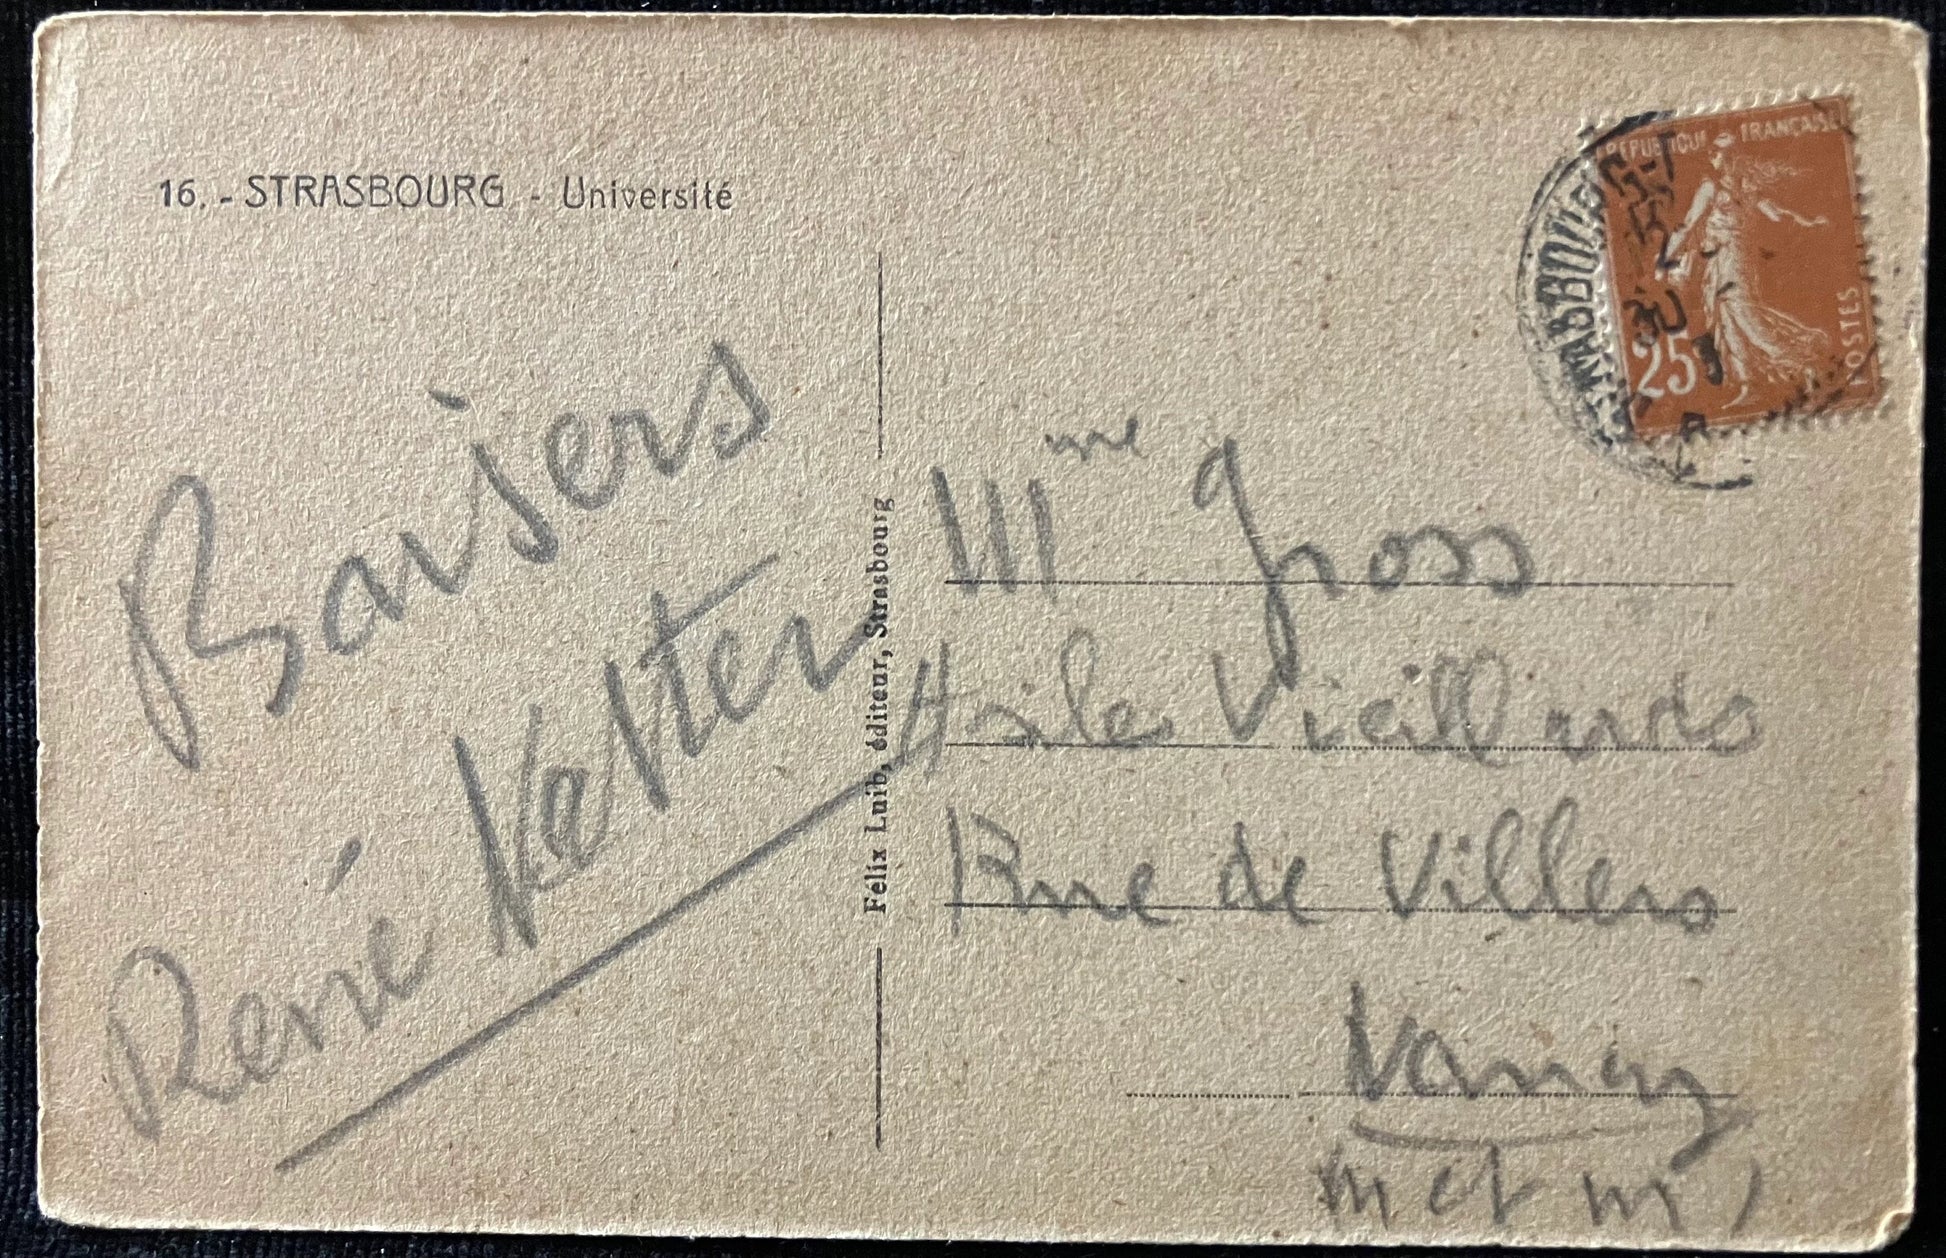 16. - STRASBOURG - Université
Baisers
René Vetter
Félix Luib, éditeur, Strasbourg
RÉPUBLIQUE FRANÇAISE
25
POSTES
Mme Gross
Asile Vieillards
Rue de Villers
Nancy
M et M